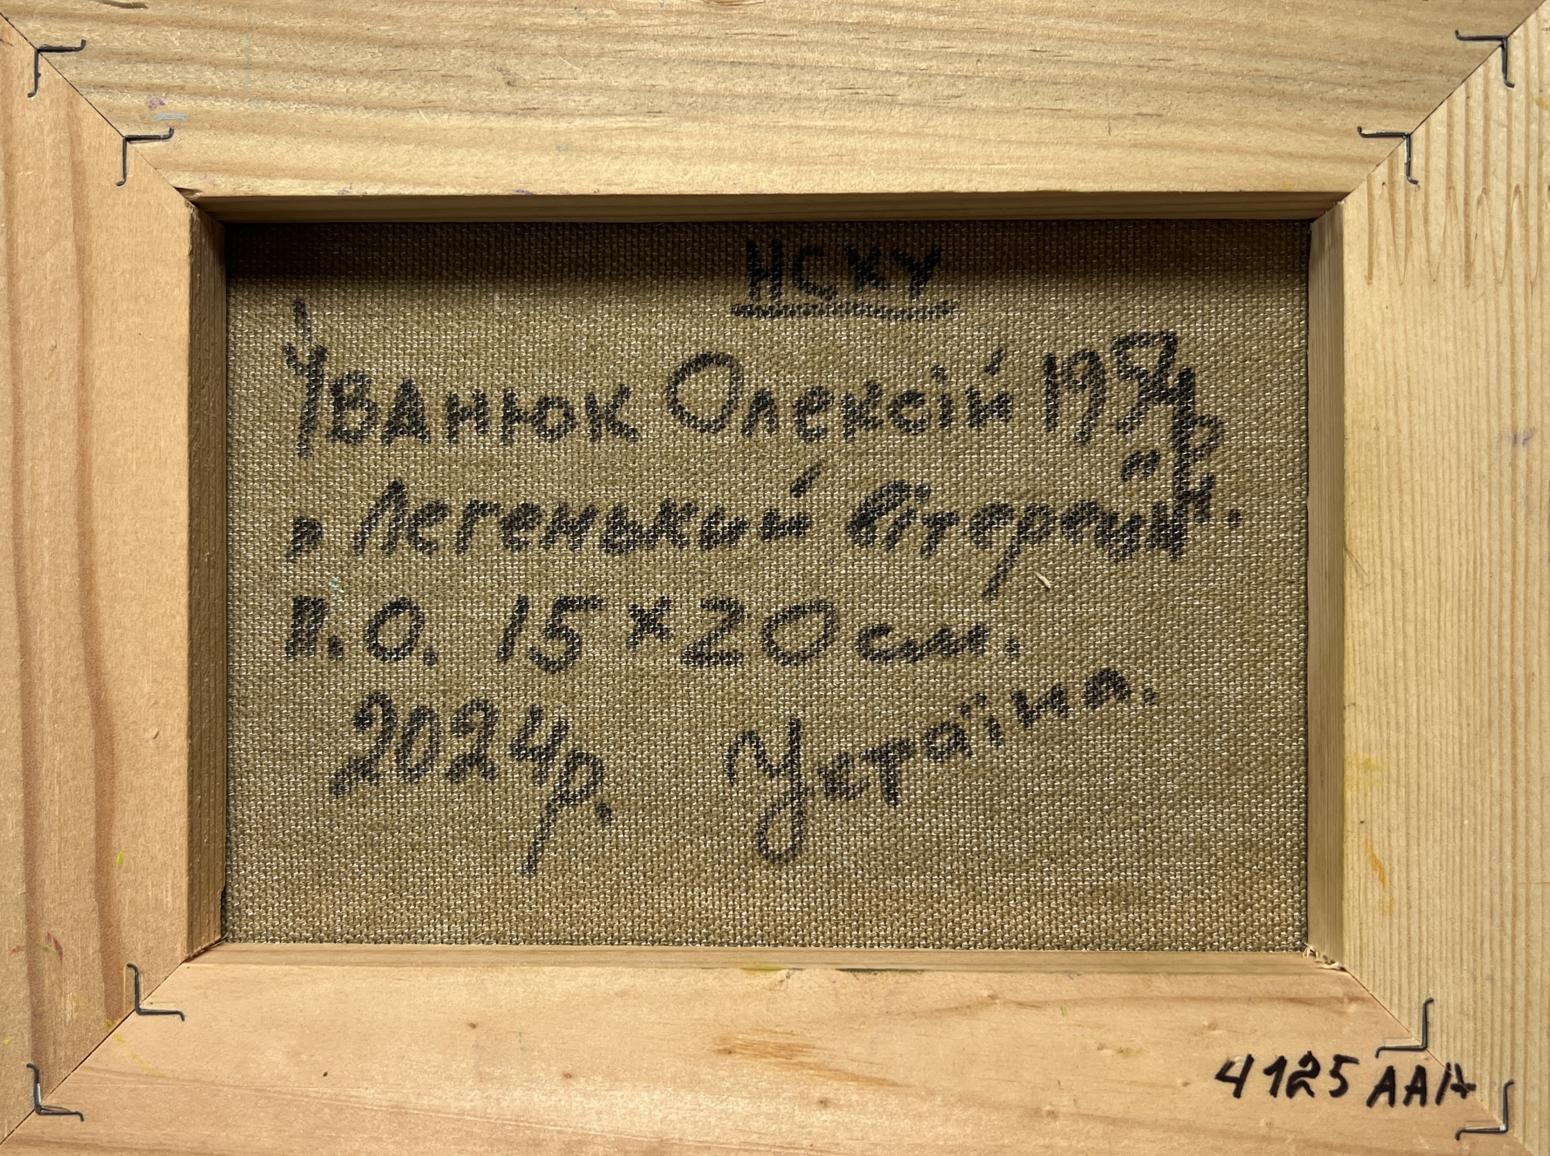 НСХУ
Іванюк Олексій 1954 р.н.
" Легенький вітерець"
П.О. 15×20 см.
2024р. Україна.
4125 ААІА